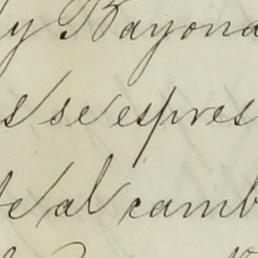 y Bayona
s se espres
te al camb